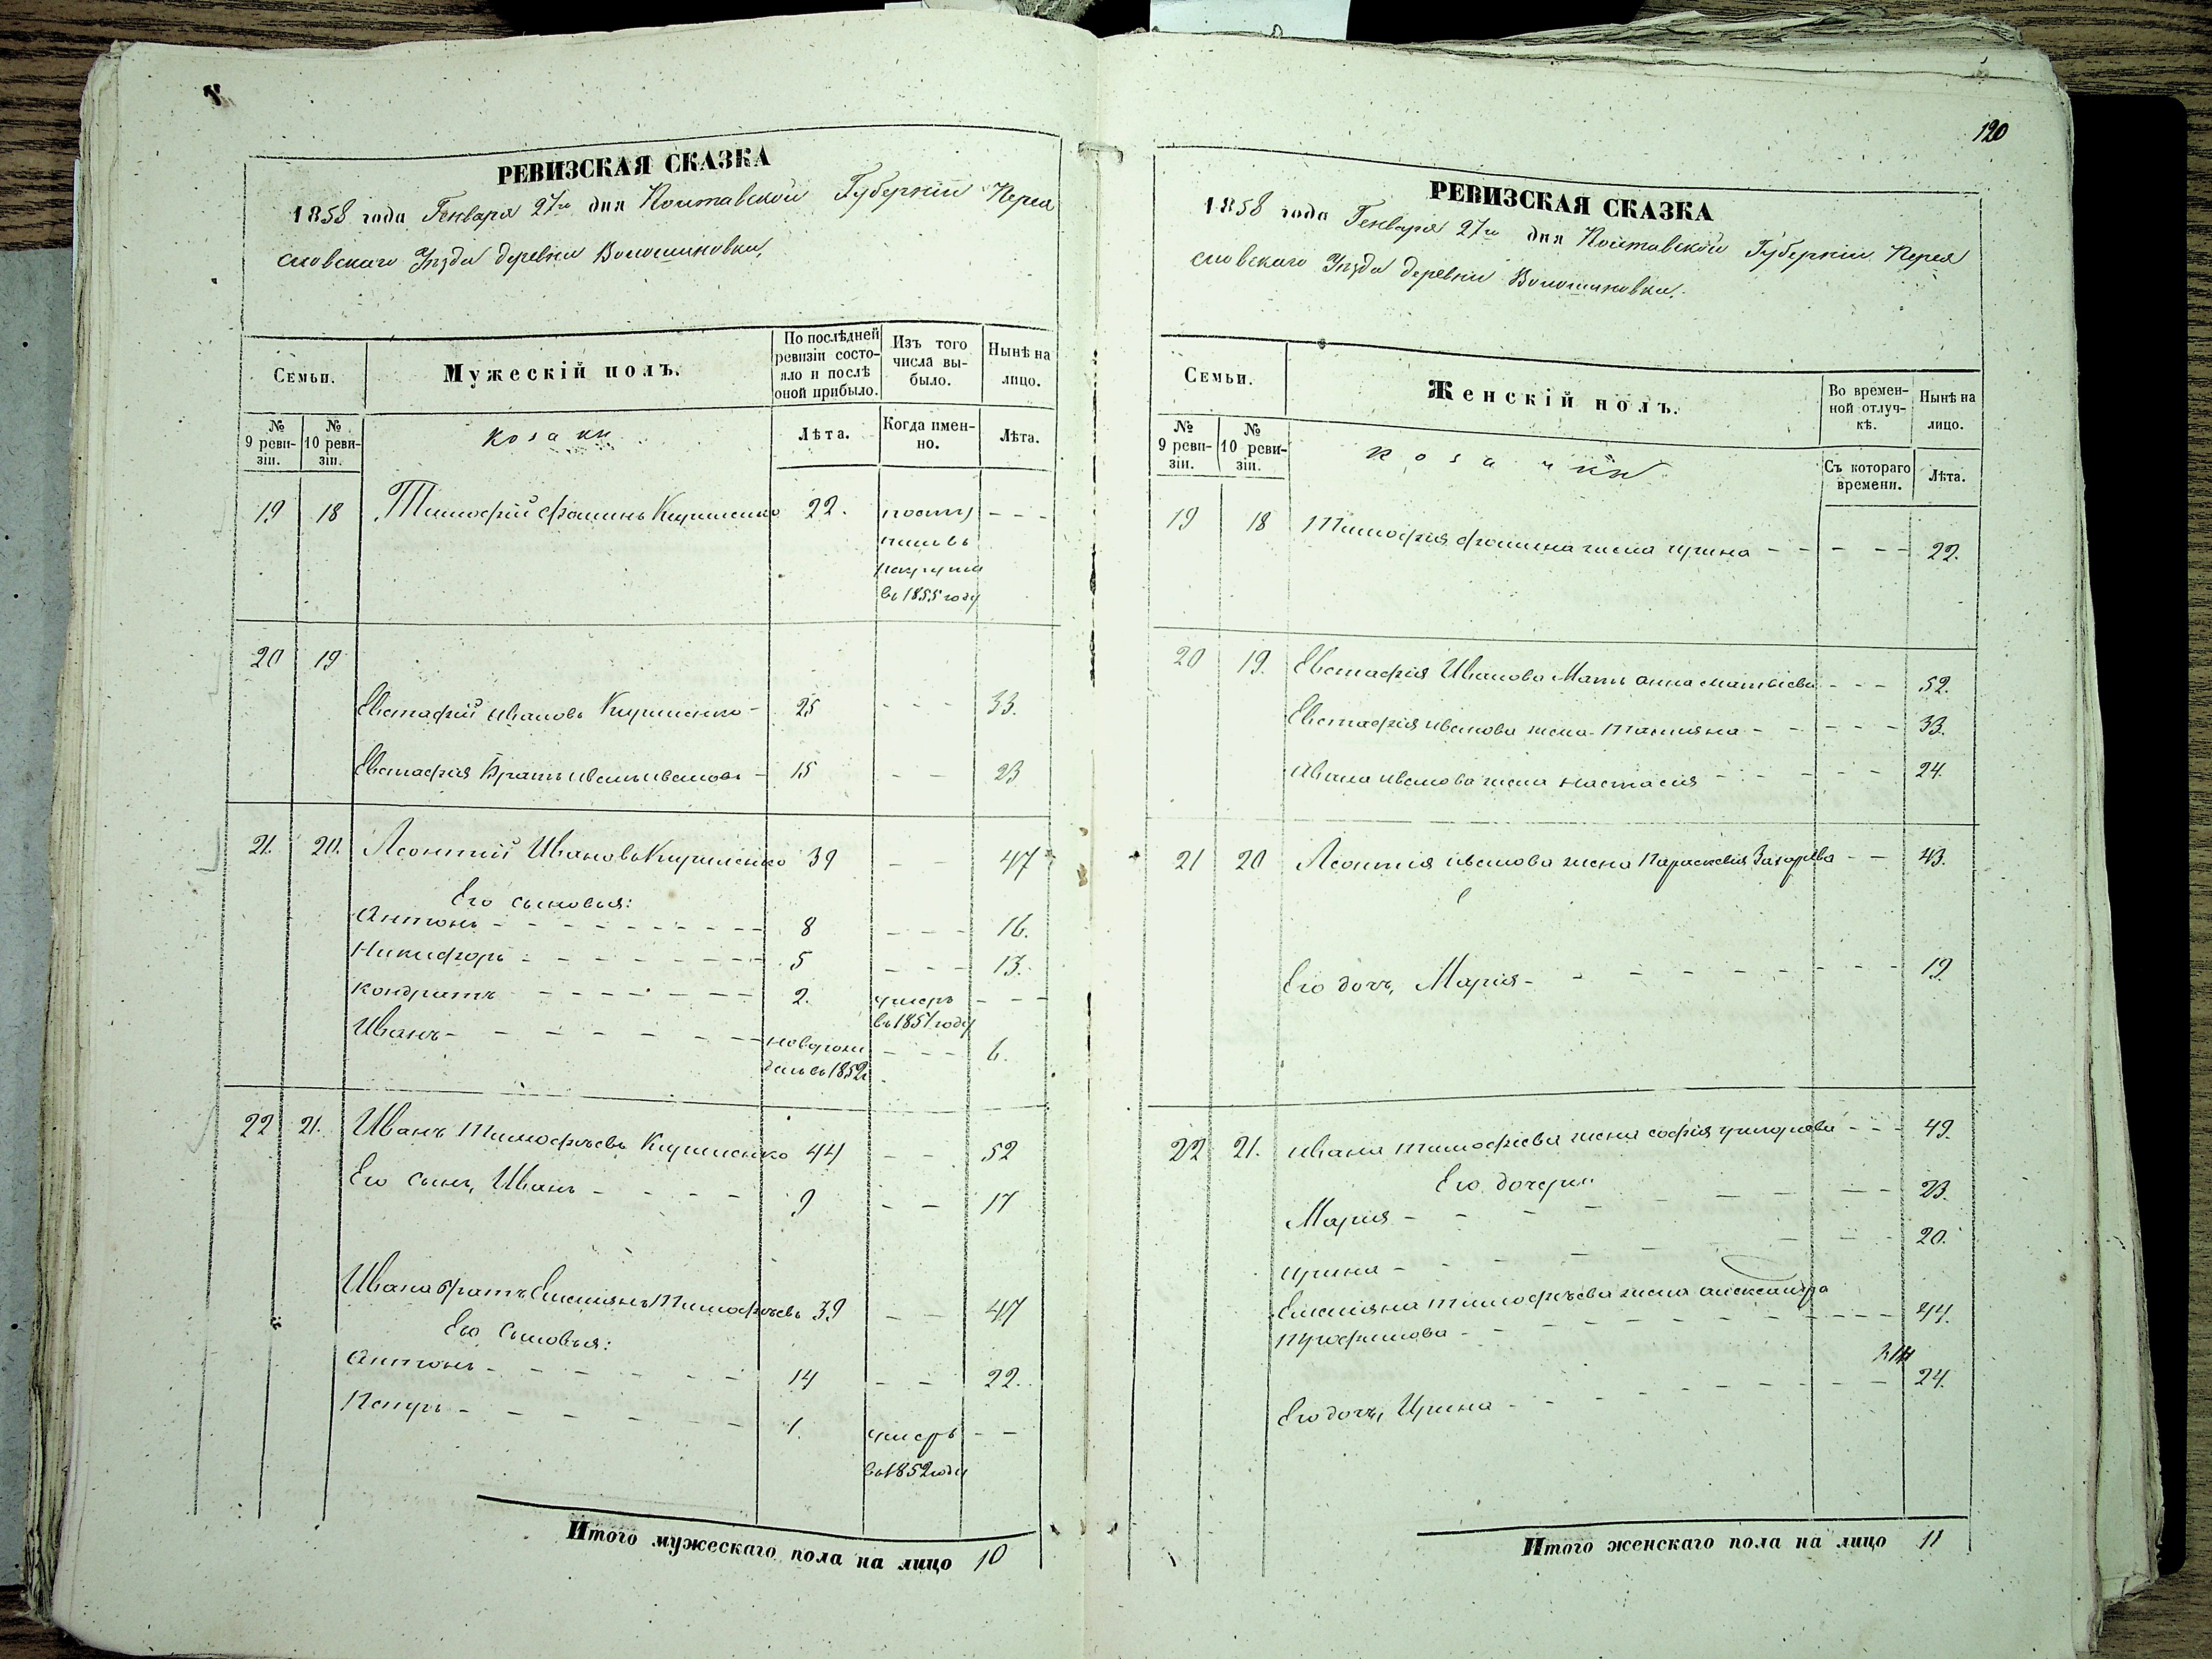 РЕВИЗСКАЯ СКАЗКА
1858 года Генваря 27го дня Полтавской Губерніи Перея
славскаго Уѣзда деревни Волошиновки,
Семьи.
Мужескій полъ.
По послѣдней ревизіи состо-
яло и послѣ
оной прибыло.
Изъ того
числа вы-
было.
Нынѣ на
лицо.
№
9 реви-
зіи.
№
10 реви-
зіи.
козаки
Лѣта.
Когда имен-
но.
Лѣта.
19 18 Тимофій Фоминъ Кириленко 22. посту
пилъ въ
рекруты
въ 1855 году
20 19
Евстафій Ивановъ Кириленко - 25 - - - 33.
Евстафія Братъ Иванъ Ивановъ - 15 - - 23
21. 20. Леонтій Ивановъ Кириленко 39 - - 47
Его сыновья:
Антонъ - 8 - - - 16.
Никифоръ - 5 - - - 13.
Кондратъ - 2. умеръ - - -
въ 1851 году
Иванъ - новорож
денъ въ 1852г - - - 6.
22 21. Иванъ Тимофѣевъ Кириленко 44 - - 52
Его сынъ, Иванъ - 9 - - 17
Ивана братъ Емелиянъ Тимофѣевъ 39 - - 47
Его Сыновья:
Антонъ - 14 - - 22.
Петръ - 1. умеръ - -
въ 1852 году
Итого мужескаго пола на лицо 10
120
РЕВИЗСКАЯ СКАЗКА
1858 года Генваря 27го дня Полтавской Губерніи Перея
славскаго Уѣзда деревни Волошиновки.
Семьи.
Женскій полъ.
Во времен-
ной отлуч-
кѣ.
Нынѣ на
лицо.
№
9 реви-
зіи.
№
10 реви-
зіи.
козачки
Съ котораго
времени.
Лѣта.
19 18 Тимофія Фомина жена Ирина - - - - - 22.
20 19. Евстафія Иванова Мать Анна Матвіева - - - 52.
Евстафія Иванова жена Татияна - - - - - 33.
Ивана Иванова жена Настасія - - - - - 24.
21 20 Леонтія Иванова жена Параскевія Захарьева - - 43.
Его дочь, Марія - 19
22 21. Ивана Тимофієва жена Софія Григориева - - - 49.
Его дочери
Марія - 23.
Ирина - 20.
Емелияна Тимофѣева жена Александра
Трофимова - 44.
Его дочь, Ирина - 24.
Итого женскаго пола на лицо 11